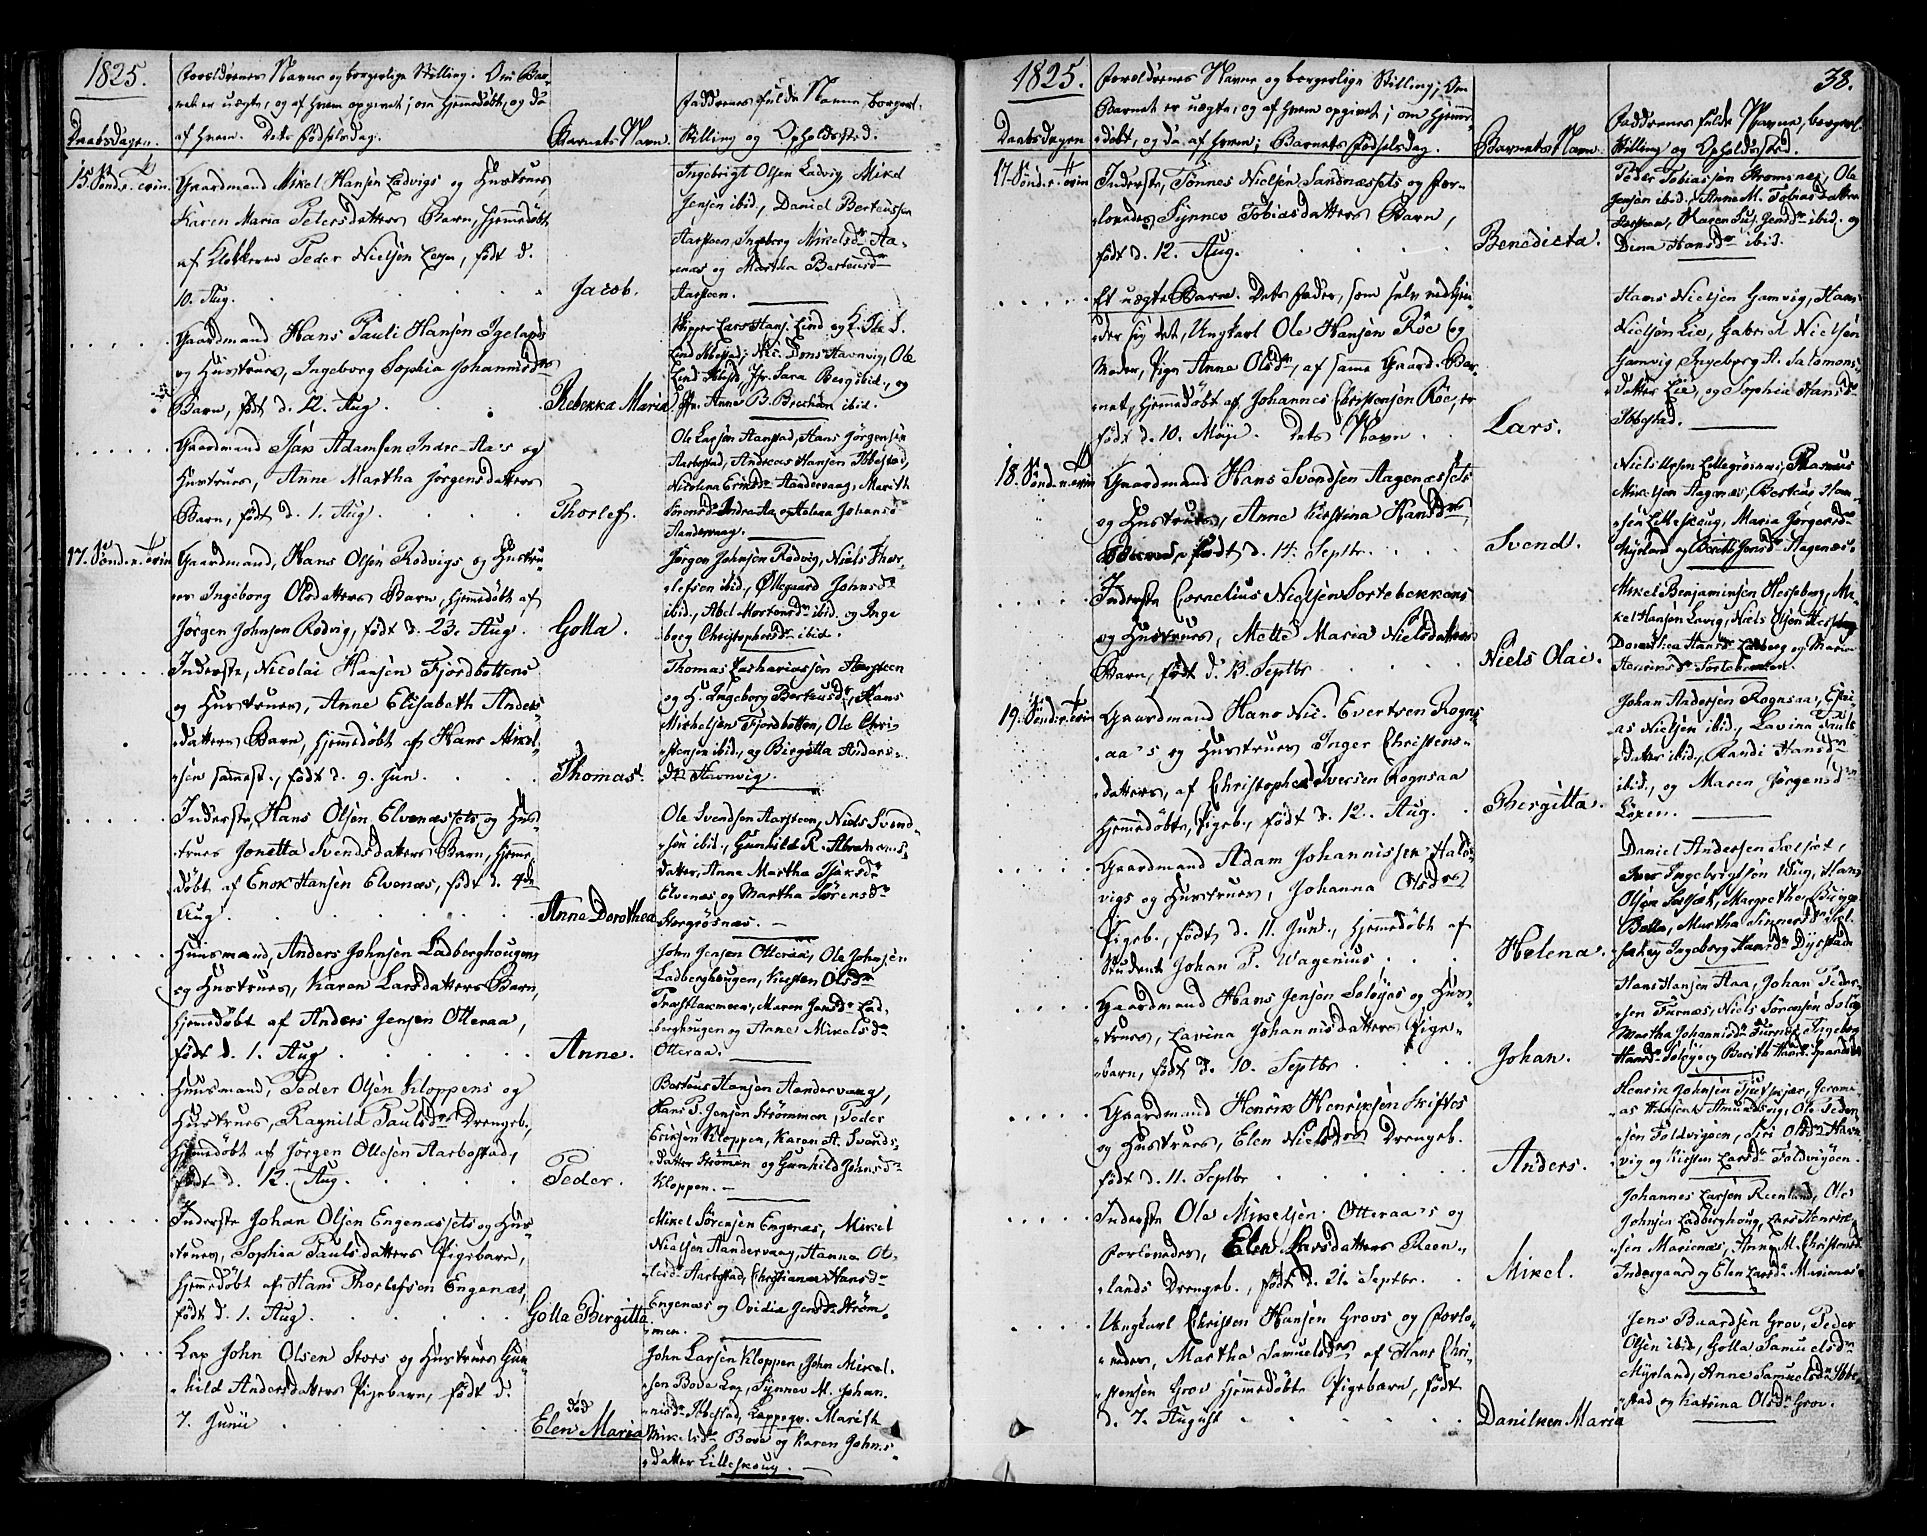 1825.
Forældrenes Navne og borgerlige Stilling. Om Bar-
net er uægte, og af hvem opgivet; om hjemmedøbt, og da
af hvem. Dets Fødselsdag.
Daabsdagen.
Barnets Navn.
Faddrenes fulde Navne, borgerl.
Stilling og Opholdssted.
15. Sønd. e. Trin.
Gaardmand Mikel Hansen Ladvigs og Hustrues
Karen Maria Petersdatters Barn, hjemmedøbt
af Klokkeren Peder Nielsen, født d.
10. Aug.
Jacob.
Ingebrigt Olsen Ladvig, Mikel
Jensen ibid., Daniel Berteussen
Aarsteen, Ingeborg Mikelsdr. Aa-
næs og Martha Berteusdr
Aarsteen.
Gaardmand Hans Pauli Hansen Igelands
og Hustrues, Ingeborg Sophia Johannisdrs
Barn, født d. 12. Aug.
Rebekka Maria
Skipper Lars Hans. Lind og
Lind Ibbestad; Nic. Dons Havnvig, Ole
Lind Ibbestd, Jfr. Sara Berg ibid., og
Jfr. Anne B. ibid.
Gaardmand Isak Adamsen Indre-Aa's og
Hustrues, Anne Martha Jørgensdatters
Barn, født d. 1. Aug.
Thorlef.
Ole Larsen Aanstad, Hans Jørgensen
Aarbostad, Andreas Hansen Ibbestad,
Nicolina Eriksdr Handervaag, Marith
Sørensdr Indre Aa, og Helena Johansdr
Handervaag.
17. Sønd. e. Trin
Gaardmand, Hans Olsen Rødvigs og Hustru-
es Ingeborg Olsdatters Barn, hjemmedøbt af
Jørgen Johnsen Rødvig, født d. 23. Aug.
Golla.
Jørgen Johnsen Rødvig, Niels Thor-
lefsen ibid., Øllegaard Johnsdr
ibid., Abel Mortensdr ibid. og Inge
borg Christophersdr ibid.
Inderste, Nicolai Hansen Fjordbottens
og Hustrues, Anne Elisabeth Anders-
datters Barn, hjemmedøbt af Hans Mikel-
sen sammest., født d. 9. Jun.
Thomas.
Thomas Zachariassen Aarsteen
og H. Ingeborg Berteusdr, Hans
Michelsen Fjordbotten, Ole Chri-
stensen ibid., og Birgitta Anders-
dr Havnvig.
Inderste, Hans Olsen Elvenæssets og Hus-
trues Jonetta Svendsdatters Barn, hjemme-
døbt af Enok Hansen Elvenæs, født d. 4de
Aug.
Anne Dorothea
Ole Svendsen Aarsteen, Niels Svend-
sen ibid., Gunhild R. Abrahams-
datter, Anne Martha Isaksdr
Elvenæs og Martha Sørensdr
Storgrøsnæs.
Huusmand, Anders Johnsen Ladberghougens
og Hustrues, Karen Larsdatters Barn,
hjemmedøbt af Anders Jensen Otteraa,
født d. 1. Aug
Anne.
John Jensen Otteraa, Ole Johnsen
Ladberghougen, Kirsten Olsdr
Maren Jensdr Lad-
berghougen og Anne Mikelsdr
Otteraa.
Huusmand, Peder Olsen Kloppens og
Hustrues, Ragnild Paulsdrs Drengeb.,
hjemmedøbt af Jørgen Ottesen Aarbostad,
født d. 12. Aug.
Peder.
Berteus Hansen Handervaag,
Hans P. Jensen Strømmen, Peder
Eriksen Kloppen, Karen A. Svends-
datter Strømmen og Gunhild Johnsdr
Kloppen.
Inderste Johan Olsen Engenæssets og Hus-
trues, Sophia Paulsdatters Pigebarn,
hjemmedøbt af Hans Thorlefsen Engenæs,
født d. 1. Aug.
Golla Birgitta.
Mikel Sørensen Engenæs, Mikel
Nielsen Handervaag, Hanna Ol-
Aarbostad, Christiana Hansdr
Engenæs og Ovidia Jensdr Strøm-
men.
Lap John Olsen Stors og Hustrues Gun-
hild Andersdatters Pigebarn, født d.
7. Junii
død
Elen Maria
John Larsen Kloppen, John Mikel-
sen Bode Lap, Synnev M. Johan-
nisdr Ibbestad, Lappeqv. Marith
Mikelsdr Bode og Karen Johns-
datter Lilleskoug.
1825.
38.
Forældrenes Navne og borgerlige Stilling; Om
Barnet er uægte, og af hvem opgivet; om hjemme-
døbt, og da af hvem; Barnets Fødselsdag.
Daabsdagen
Barnets Navn.
Faddrenes fulde Navne, borgerl.
Stilling og Opholdssted.
17. Sønd. e. Trin
Inderste, Tønnes Nielsen Sandnæssets og For-
lovedes, Synnev Tobiasdatters Barn,
født d. 12. Aug.
Benedicta.
Peder Tobiassen Strømsnes, Ole
Jensen ibid., Anne M. Tobiasdatter
Maren Jensdr ibid. og
Dina Hansdr ibid.
Et uægte Barn. Dets Fader, som selv vedkjen-
der sig det, Ungkarl Ole Hansen Röe og
Moder, Pige Anne Olsdr, af samme Gaard. Bar-
net, hjemmedøbt af Johannes Christensen Röe, er
født d. 10. Maye. Dets Navn
Lars.
Hans Nielsen Gamvig, Hans
Nielsen Lie, Gabriel Nielsen
Gamvig, Ingeborg A. Salomons-
datter Lie, og Sophia Hansdr
Ibbestad.
18. Sønd. e. Trin
Gaardmand Hans Svendsen Aagenæssets
og Hustrues, Anne Kirstina Hansdrs,
Barn, født d. 14. Septbr.
Svend.
Niels Lillegrøsnæs, Rasmus
Mikelsen Aagenæs, Berteus Han-
sen Lilleskoug, Maria Jørgensdr
Myrland og Jensdr Aagenæs.
Inderste Cornelius Nielsen Sortebekkens
og Hustrues, Mette Maria Nielsdatters
Barn, født d. 13. Septbr
Niels Olai.
Mikel Benjaminsen Hessberg, Mi-
kel Hansen Lavig, Niels Olsen
Dorothea Hansdr Ladberg og Maria
Henriksdr Sortebekken.
19. Sønd. e. Trin
Gaardmand Hans Nic. Evertsen Rogns-
aa's og Hustrues Inger Christens-
datters, af Christopher Iversen Rognsaa
hjemmedøbte, Pigeb., født d. 12. Aug.
Bergitta.
Johan Andersen Rognsaa, Esai-
as Nielsen ibid., Lavina Pauls-
datter ibid., Randi Hansdr
ibid., og Maren Jørgensdr
Løxen.
Gaardmand Adam Johannissen Hals-
vigs og Hustrues, Johanna Olsdrs
Pigeb., født d. 11. Jun., hjemmedøbt af
Student Johan P. Wagenius
Helena.
Daniel Andersen Sælsæt,
Iver Ingebrigtsen Bug, Hans
Olsen Sælsæt, Margrethe
Bolla, Martha Sinnersdr
Ingeborg Haardr Dyfstad
Gaardmand Hans Jensen Soløyes og Hus-
trues, Lavina Johannisdatters Pige-
barn, født d. 10. Septbr
Johan.
Hans Hansen Haa, Johan Peder-
sen Furnæs, Niels Sørensen
Martha Johannisdr Furnæs, Ingeborg
Haardr Soløye og Berith
Gaardmand Henrik Henriksen Skiftes
og Hustrues, Elen Nielsdrs Drengeb.
født d. 11. Septbr
Anders.
Henrik Johnsen Tjutskjær, Jerimi-
as Hansen Amundsvig, Ole Peder-
sen Foldvigøen, Siri Olsdr Havn-
vig og Kirsten Larsdr Foldvigøen.
Inderste Ole Mikelsen Otteraa's og
Forlovedes, Elen Larsdatters Reen-
lands Drengeb., født d. 21. Septbr.
Mikel.
Johannes Larsen Reenland, Ole
Johnsen Ladberghoug, Lars Henrik-
sen Marienæs, Anne M. Christensdr
Indergaard og Elen Larsdr Marienæs
Ungkarl Christen Hansen Grovs og Forlo-
vedes, Martha Samuelsdrs af Hans Chri-
stensen Grov hjemmedøbte Pigebarn, født
d. 7. August
Danilken Maria
Jens Baardsen Grov, Peder
Olsen ibid., Golla Samuelsdr
Myrland, Anne Samuelsdr Ibbe-
stad og Katrina Olsdr Grov.